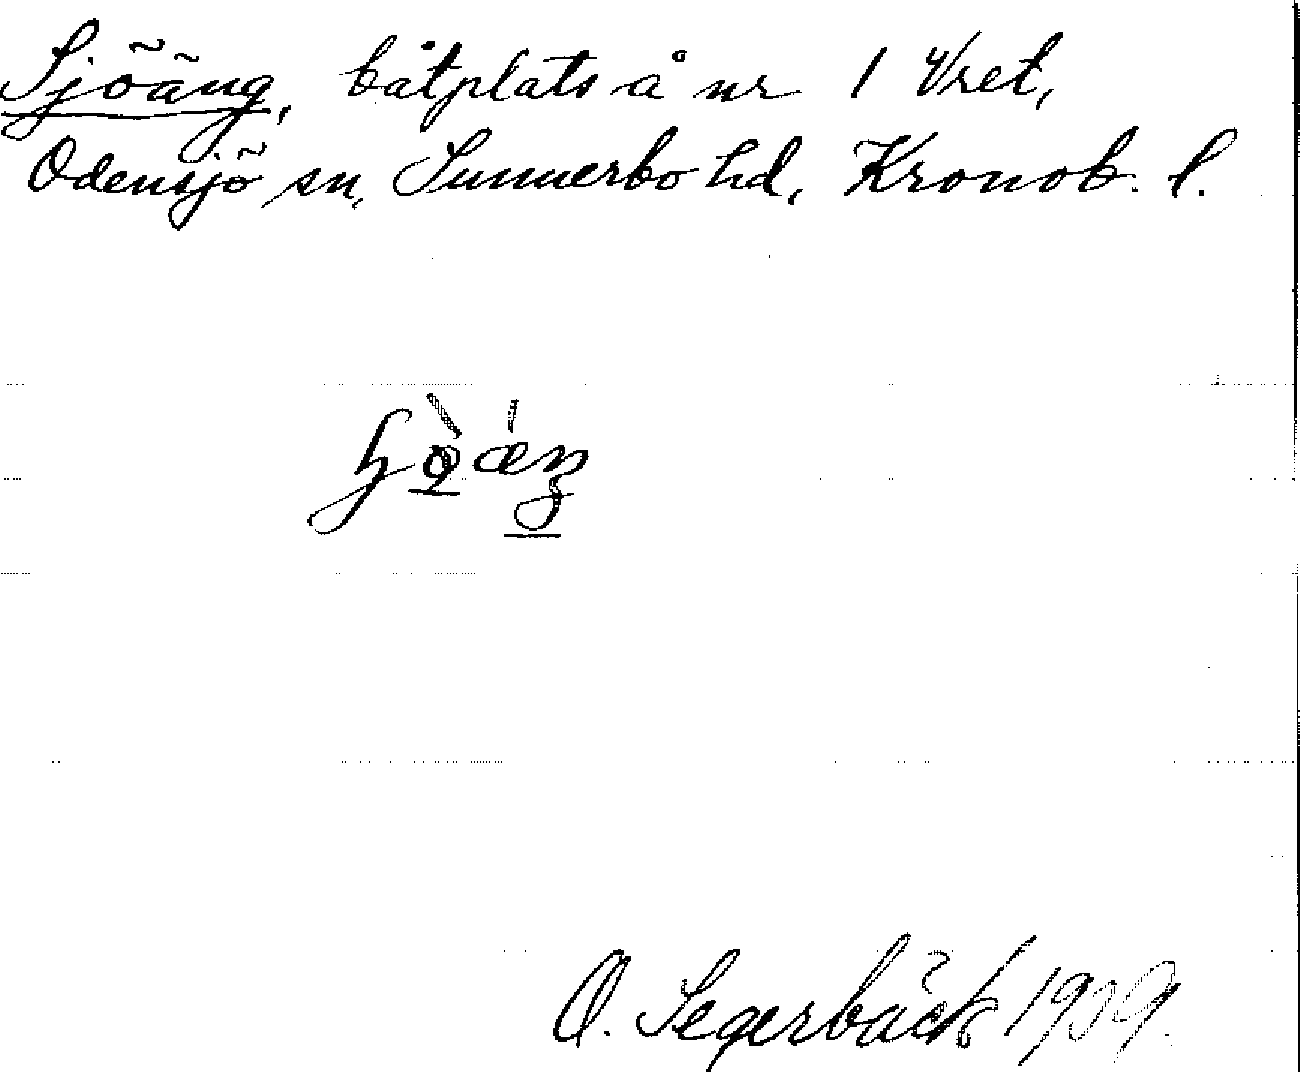 Sjöäng, båtplats å nr 1 Vret,
Odensjö sn, Sunnerbo hd, Kronob. l.
O. Segerbäck 1939.